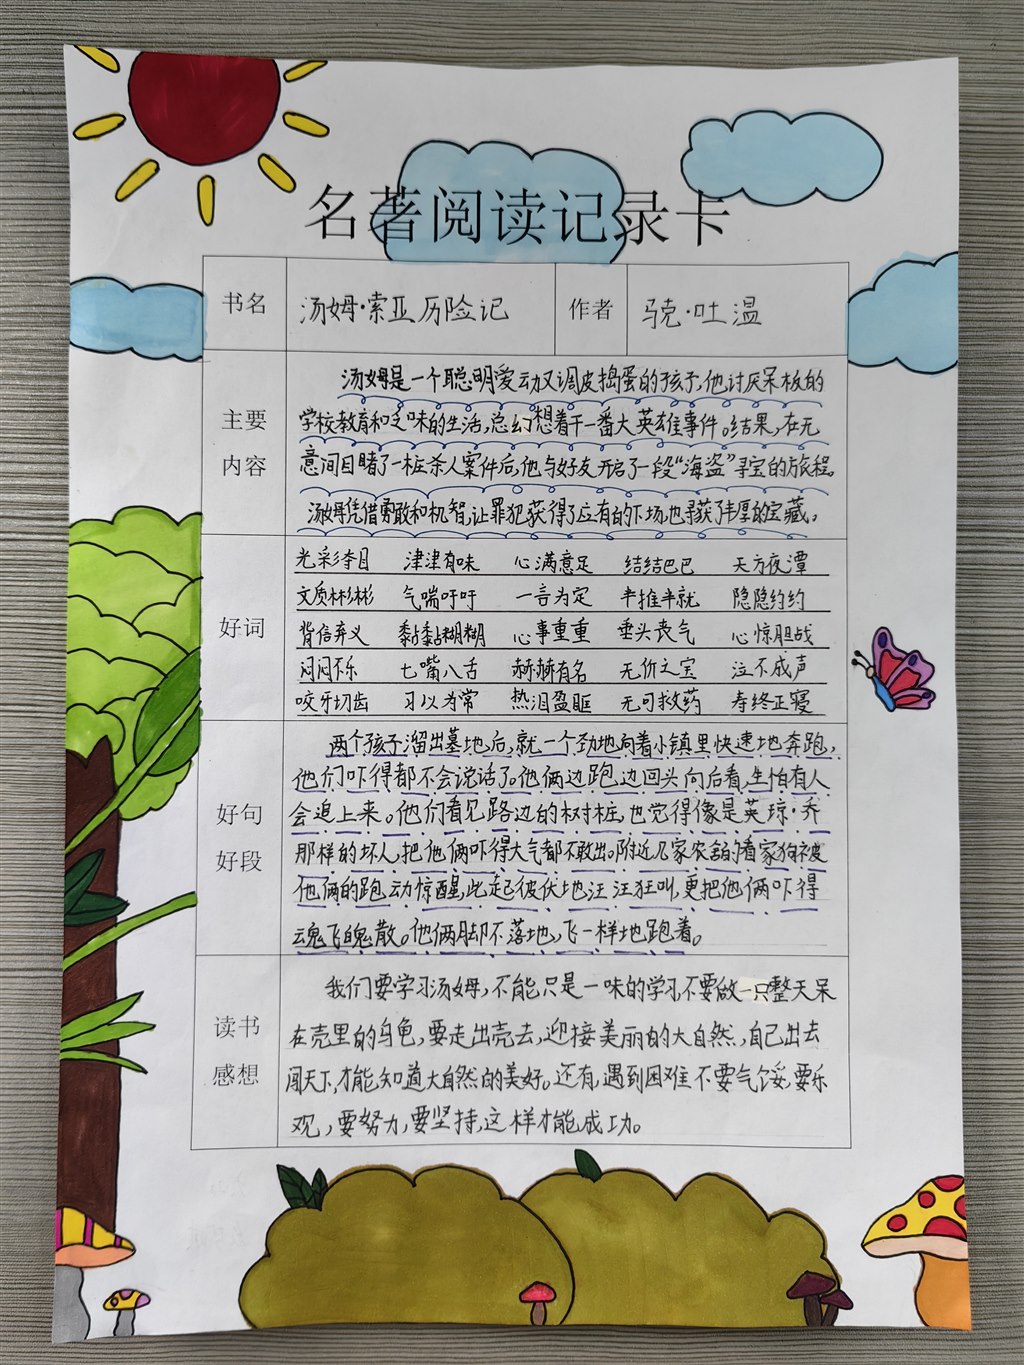 名著阅读记录卡
书名 汤姆·索亚历险记 作者 马克·吐温
主要内容
汤姆是一个聪明爱动又调皮捣蛋的孩子,他讨厌呆板的
学校教育和乏味的生活,总幻想着干一番大英雄事件。结果,在无
意间目睹了一桩杀人案件后,他与好友开启了一段“海盗”寻宝的旅程。
汤姆凭借勇敢和机智,让罪犯获得了应有的下场,也寻获了丰厚的宝藏。
好词
光彩夺目 津津有味 心满意足 结结巴巴 天方夜潭
文质彬彬 气喘吁吁 一言为定 半推半就 隐隐约约
背信弃义 黏黏糊糊 心事重重 垂头丧气 心惊胆战
闷闷不乐 七嘴八舌 赫赫有名 无价之宝 泣不成声
咬牙切齿 习以为常 热泪盈眶 无可救药 寿终正寝
好句好段
两个孩子溜出墓地后,就一个劲地向着小镇里快速地奔跑,
他们吓得都不会说话了。他俩边跑,边回头向后看,生怕有人
会追上来。他们看见路边的树桩,也觉得像是英琼·乔
那样的坏人,把他俩吓得大气都不敢出。附近几家农舍的看家狗被
他俩的跑动惊醒,此起彼伏地汪汪狂叫,更把他俩吓得
魂飞魄散。他俩脚不落地,飞一样地跑着。
读书感想
我们要学习汤姆,不能只是一味的学习,不要做一只整天呆
在壳里的乌龟,要走出壳去,迎接美丽的大自然,自己出去
闯天下,才能知道大自然的美好。还有,遇到困难不要气馁,要乐
观,要努力,要坚持,这样才能成功。